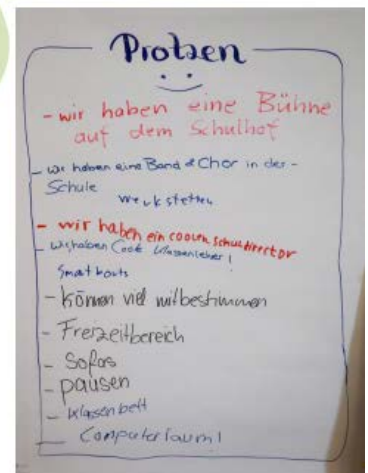 Protzen
- wir haben eine Bühne
auf dem Schulhof
- wir haben eine Band & Chor in der -
Schule
Werkstetten
- wir haben ein coolen Schuldirector
- wir haben Coole Klassenleher!
Smartborts
- können viel mitbestimmen
- Freizeitbereich
- Sofas
- pausen
- Klassenbett
- Computerraum!